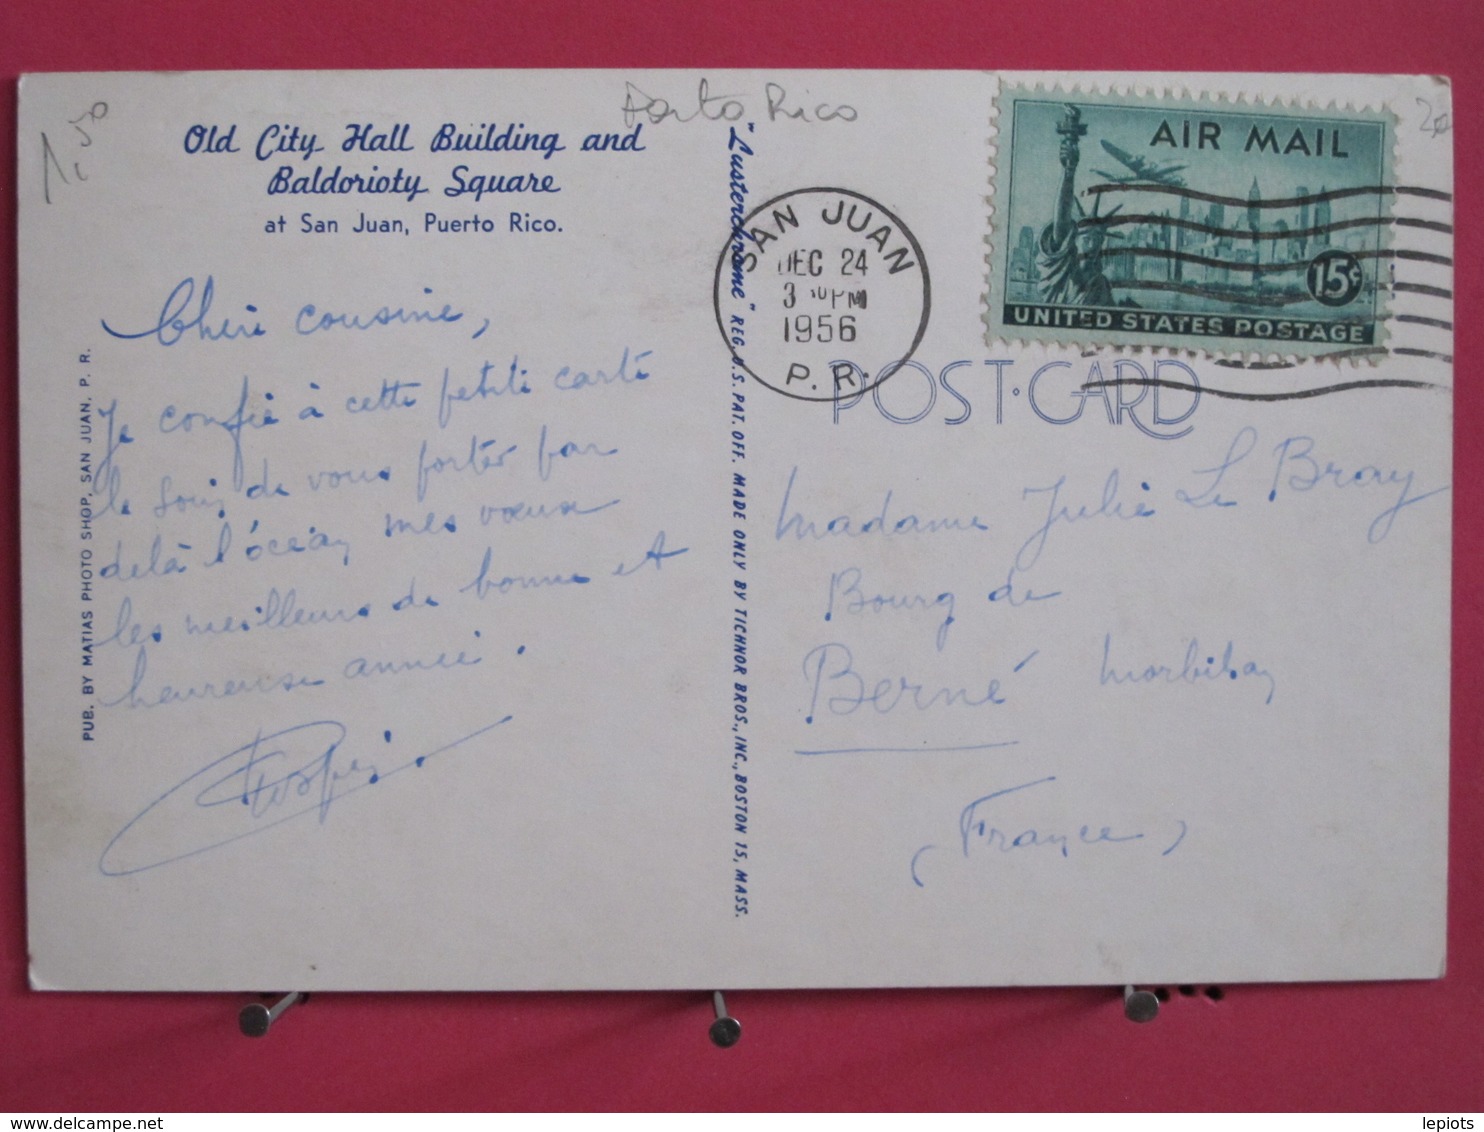 1,50
Porto Rico
20
Old City Hall Building and
Baldorioty Square
at San Juan, Puerto Rico.
Chère cousine,
Je confie à cette petite carte
le soin de vous porter par
delà l'océan mes vœux
les meilleurs de bonne et
heureuse année.
PUB. BY MATIAS PHOTO SHOP, SAN JUAN, P. R.
"Lusterchrome" REG. U.S. PAT. OFF. MADE ONLY BY TICHNOR BROS., INC., BOSTON 15, MASS.
SAN JUAN
DEC 24
3 PM
1956
P. R.
AIR MAIL
15¢
UNITED STATES POSTAGE
POST-CARD
Madame Julie Le Bray
Bourg de
Berné Morbihan
(France)
delcampe.net
lepiots